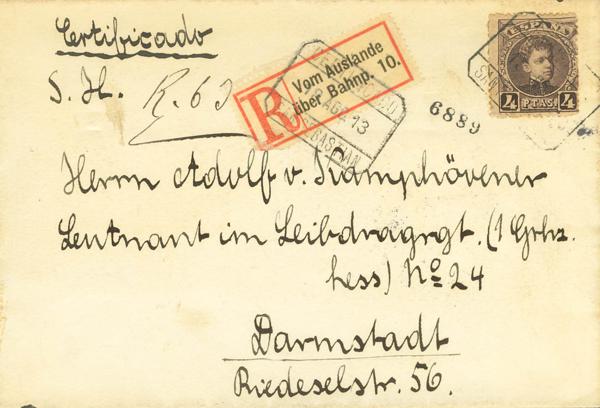 Certificado
S. H. R. 60
R Vom Auslande
über Bahnp. 10.
AGO 13
SAN SEBASTIAN
6889
ESPAÑA
4 PTAS 4
SAN
Herrn Adolf v. Kamphövener
Leutnant im Leibdragrgt. (1 Grhz.
hess) No 24
Darmstadt
Riedeselstr. 56.